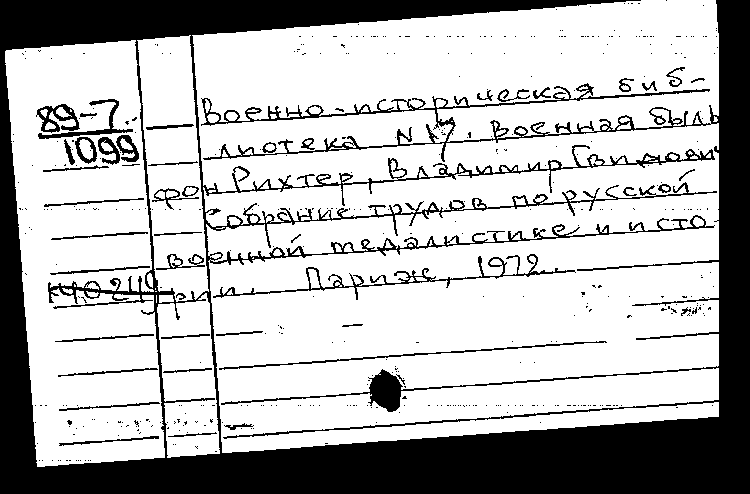 89-7
1099
Военно-историческая биб-
лиотека N 17. Военная быль
фон Рихтер, Владимир Гвидович
Собрание трудов по русской
военной медалистике и исто
рии. Париж, 1972.